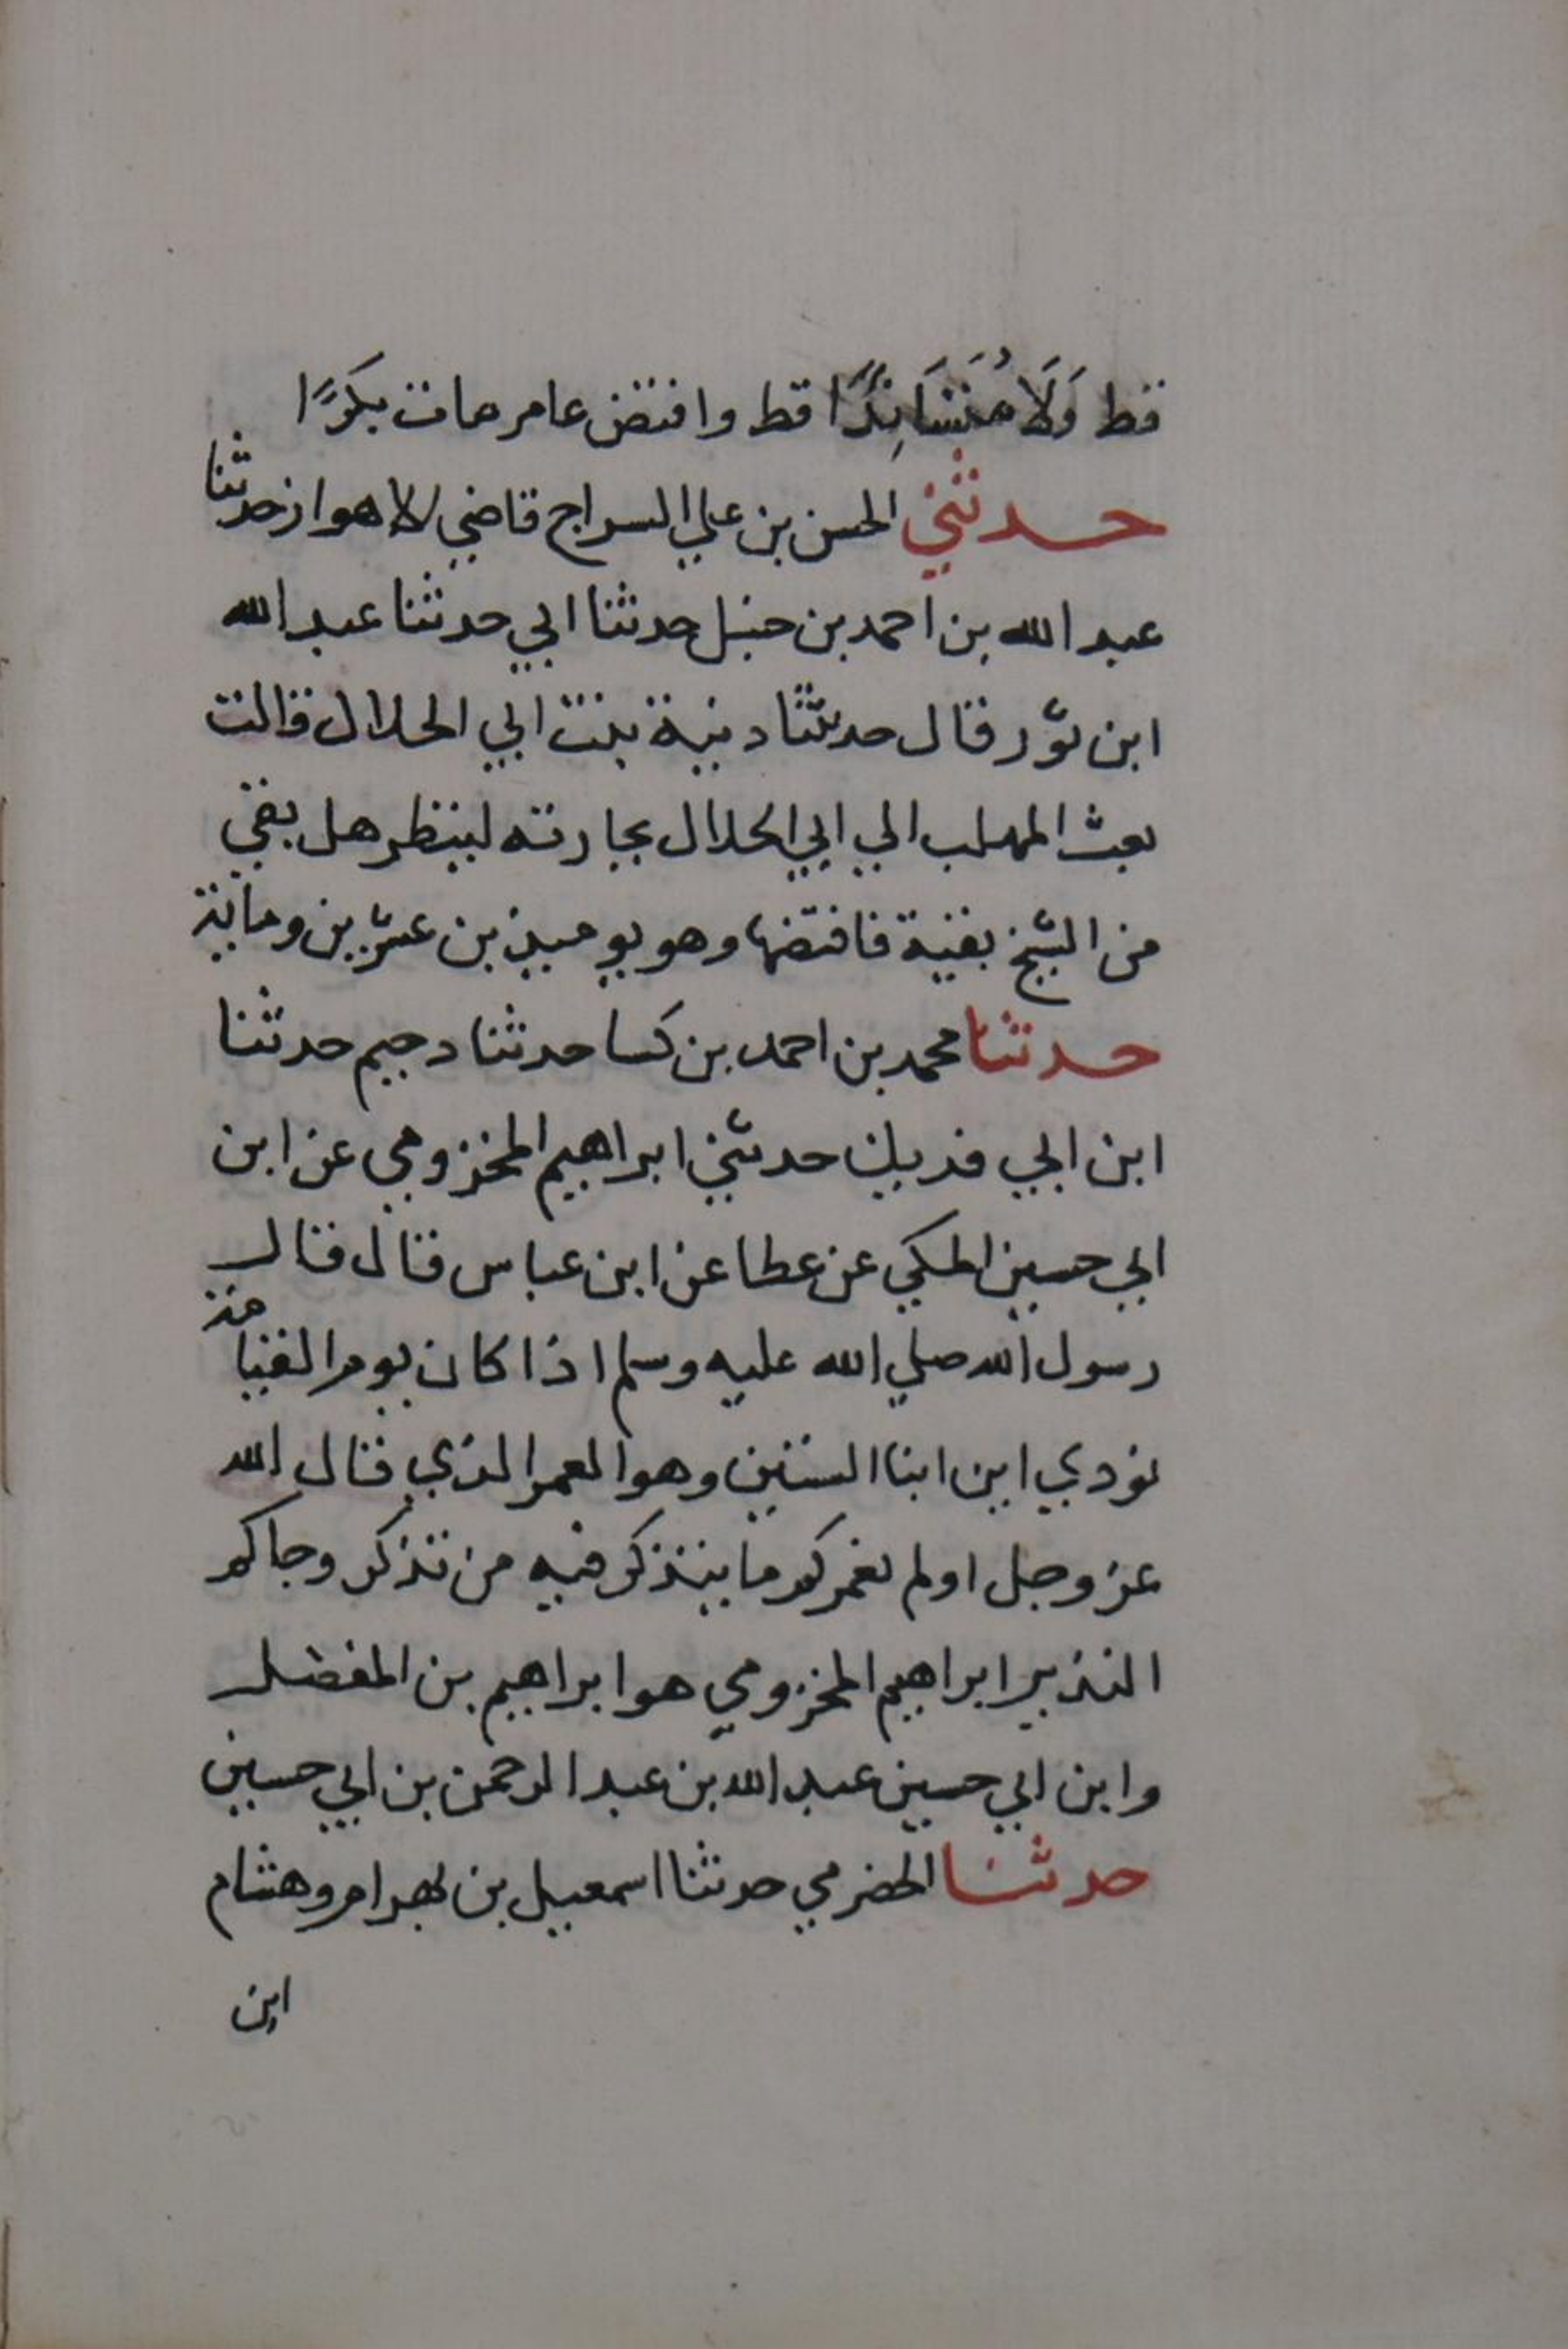 قط وَلَا مُتَسَانِدًا قط وافتض عام مات بكرًا
حدثني الحسن بن علي السراج قاضي الاهواز حدثنا
عبد الله بن احمد بن حنبل حدثنا ابي حدثنا عبد الله
ابن ثور قال حدثتنا دينية بنت ابي الحلال قالت
بعث المهلب الي ابي الحلال بجارته لينظر هل بقي
من الشيخ بقية فافتضها وهو يوميذ بن عشرين وماية
حدثنا محمد بن احمد بن كسا حدثنا دحيم حدثنا
ابن ابي فديك حدثني ابراهيم المخزومي عن ابن
ابي حسين المكي عن عطا عن ابن عباس قال قال
رسول الله صلي الله عليه وسلم اذا كان يوم القيامة
نودي اين ابنا الستين وهو العمر الذي قال الله
عز وجل اولم نعمركم ما يتذكر فيه من تذكر وجاكم
النذير ابراهيم المخزومي هو ابراهيم بن المفضل
وابن ابي حسين عبد الله بن عبد الرحمن بن ابي حسين
حدثنا الحضرمي حدثنا اسمعيل بن بهرام وهشام
ابن